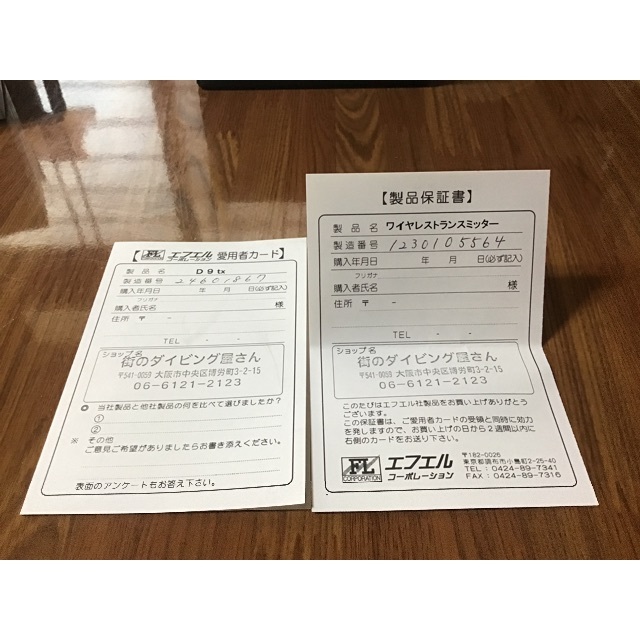 【 FL CORPORATION エフエル コーポレーション 愛用者カード】
製品名 D9tx
製造番号 24601867
購入年月日 年 月 日(必ず記入)
フリガナ
購入者氏名 様
住所 〒 -
TEL - -
ショップ名
街のダイビング屋さん
〒541-0059 大阪市中央区博労町3-2-15
06-6121-2123
当社製品と他社製品の何を比べて選びましたか?
①
②
※ その他
ご意見ご希望がありましたらお書き添えください。
表面のアンケートもお答え下さい。
【製品保証書】
製品名 ワイヤレストランスミッター
製造番号 1230105564
購入年月日 年 月 日(必ず記入)
フリガナ
購入者氏名 様
住所 〒 -
TEL - -
ショップ名
街のダイビング屋さん
〒541-0059 大阪市中央区博労町3-2-15
06-6121-2123
このたびはエフエル社製品をお買い上げありがとう
ございます。
この保証書は、ご愛用者カードの受領と同時に効力
を発しますので、お買い上げの日から2週間以内に
右側のカードをお送り下さい。
FL CORPORATION エフエル コーポレーション
〒182-0026
東京都調布市小島町2-25-40
TEL:0424-89-7341
FAX:0424-89-7316